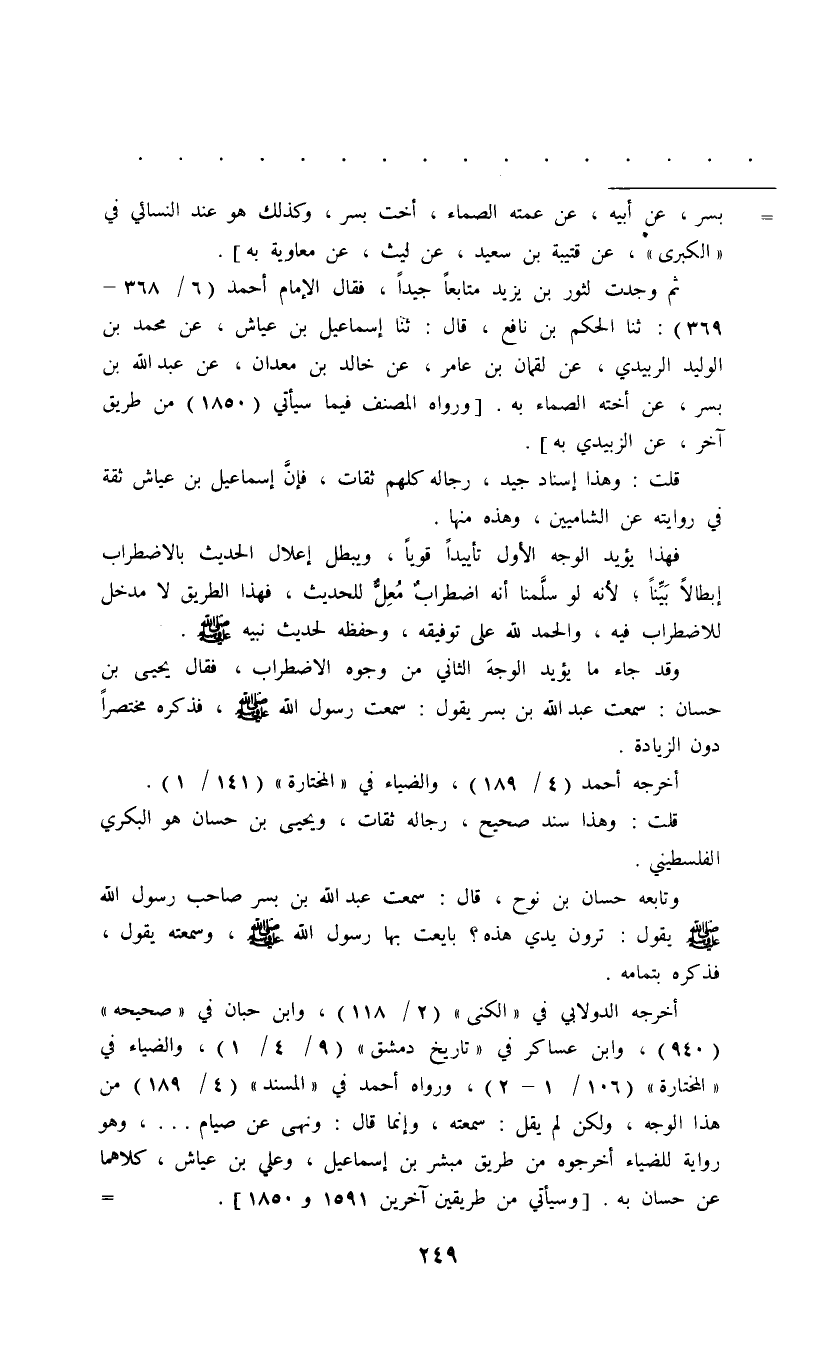 . . . . . . . . . . . . . . . .
= بسر ، عن أبيه ، عن عمته الصماء ، أخت بسر ، وكذلك هو عند النسائي في
« الكبرى » ، عن قتيبة بن سعيد ، عن ليث ، عن معاوية به ] .
ثم وجدت لثور بن يزيد متابعاً جيداً ، فقال الإمام أحمد ( ٦ / ٣٦٨ –
٣٦٩ ) : ثنا الحكم بن نافع ، قال : ثنا إسماعيل بن عياش ، عن محمد بن
الوليد الزبيدي ، عن لقمان بن عامر ، عن خالد بن معدان ، عن عبد الله بن
بسر ، عن أخته الصماء به . [ ورواه المصنف فيما سيأتي ( ١٨٥٠ ) من طريق
آخر ، عن الزبيدي به ] .
قلت : وهذا إسناد جيد ، رجاله كلهم ثقات ، فإنَّ إسماعيل بن عياش ثقة
في روايته عن الشاميين ، وهذه منها .
فهذا يؤيد الوجه الأول تأييداً قوياً ، ويبطل إعلال الحديث بالاضطراب
إبطالاً بَيِّناً ؛ لأنه لو سلَّمنا أنه اضطرابٌ مُعِلٌّ للحديث ، فهذا الطريق لا مدخل
للاضطراب فيه ، والحمد لله على توفيقه ، وحفظه لحديث نبيه ﷺ .
وقد جاء ما يؤيد الوجهَ الثاني من وجوه الاضطراب ، فقال يحيى بن
حسان : سمعت عبد الله بن بسر يقول : سمعت رسول الله ﷺ ، فذكره مختصراً
دون الزيادة .
أخرجه أحمد ( ٤ / ١٨٩ ) ، والضياء في « المختارة » ( ١٤١ / ١ ) .
قلت : وهذا سند صحيح ، رجاله ثقات ، ويحيى بن حسان هو البكري
الفلسطيني .
وتابعه حسان بن نوح ، قال : سمعت عبد الله بن بسر صاحب رسول الله
ﷺ يقول : ترون يدي هذه ؟ بايعت بها رسول الله ﷺ ، وسمعته يقول ،
فذكره بتمامه .
أخرجه الدولابي في « الكنى » ( ٢ / ١١٨ ) ، وابن حبان في « صحيحه »
( ٩٤٠ ) ، وابن عساكر في « تاريخ دمشق » ( ٩ / ٤ / ١ ) ، والضياء في
« المختارة » ( ١٠٦ / ١ – ٢ ) ، ورواه أحمد في « المسند » ( ٤ / ١٨٩ ) من
هذا الوجه ، ولكن لم يقل : سمعته ، وإنما قال : ونهى عن صيام . . . ، وهو
رواية للضياء أخرجوه من طريق مبشر بن إسماعيل ، وعلي بن عياش ، كلاهما
عن حسان به . [ وسيأتي من طريقين آخرين ١٥٩١ و ١٨٥٠ ] . =
٢٤٩